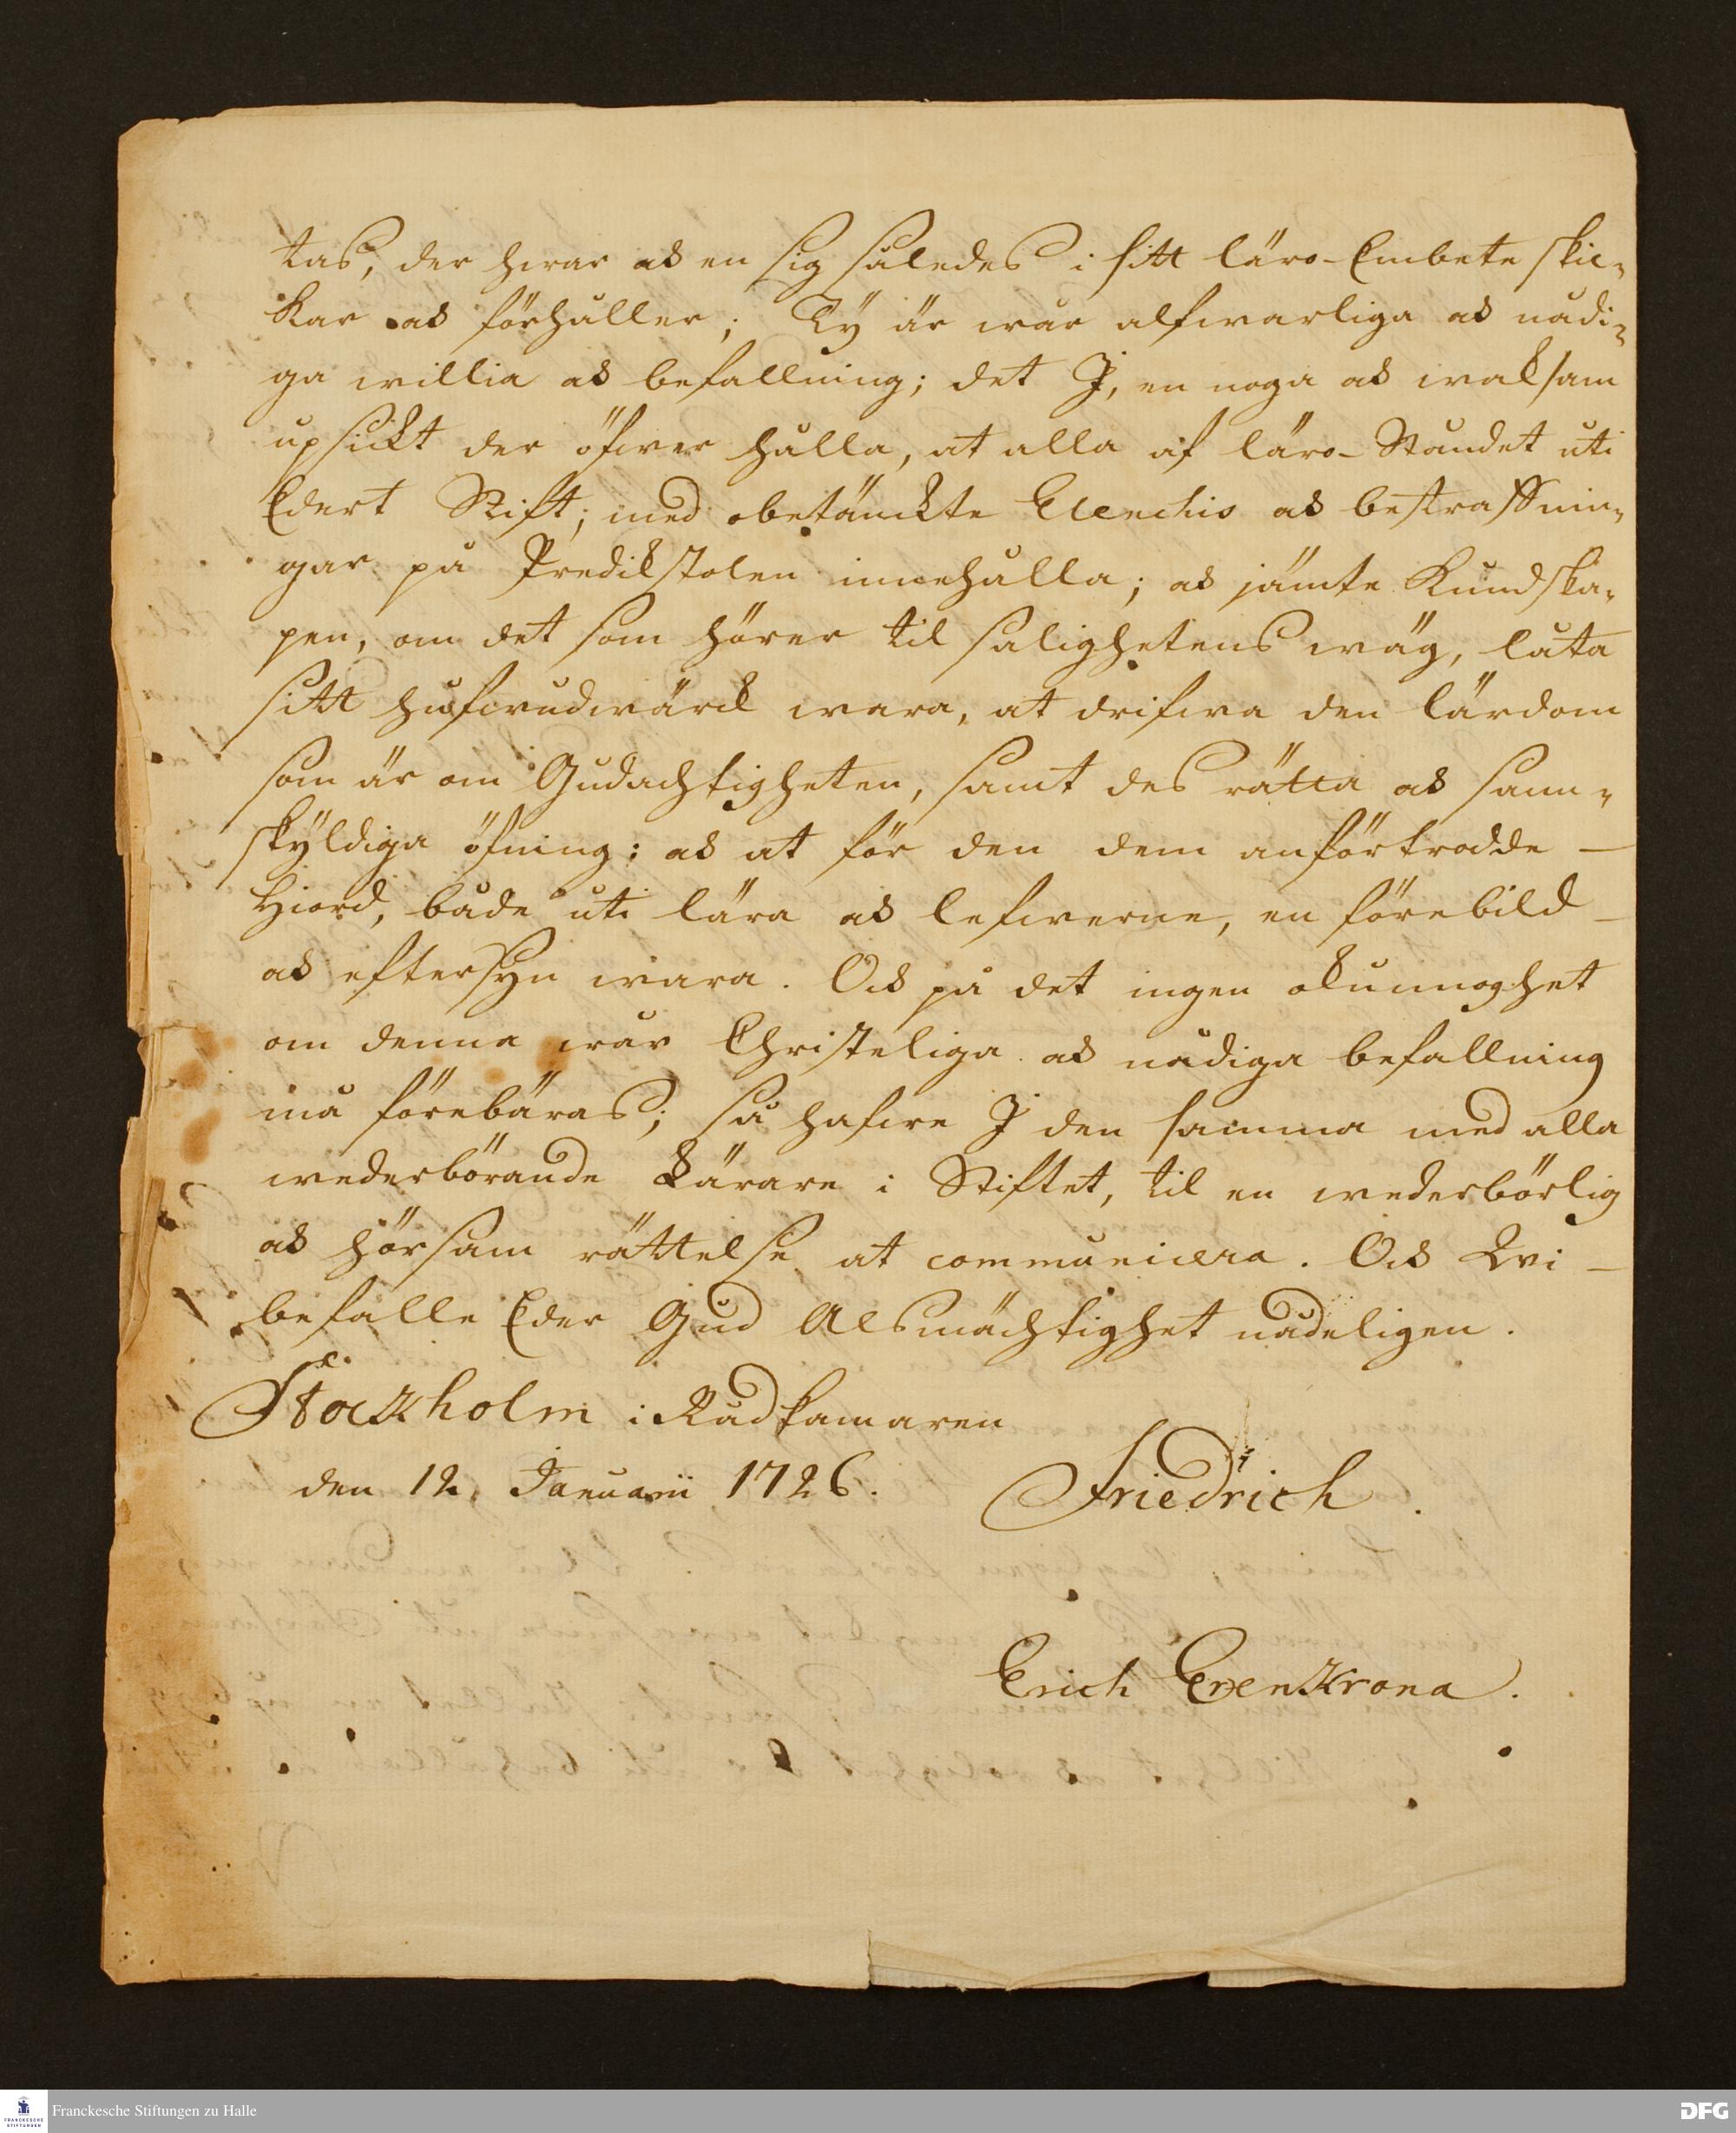 tas, der hwar ock en sig således i sitt läro-Embete skic-
kar ock förhåller; Ty är wår alfwarliga ock nådi-
ga willia ock befallning; det J, en noga ock waksam
upsickt der öfwer hålla, at alla af läro-Ståndet uti
Edert Stift; med obetänckte Elenchis ock bestraffnin-
gar på Predikstolen innehålla; ock jämte Kundska-
pen, om det som hörer til salighetens wäg, låta
sitt hufwudwärck wara, at drifwa den lärdom
som är om Gudachtigheten, samt des rätta ock sann-
skyldiga öfning: ock at för den dem anförtrodde –
Hiord, både uti lära ock lefwerne, en förebild –
ock eftersyn wara. Ock på det ingen okunnoghet
om denna wår Christeliga ock nådiga befallning
må förebäras; så hafwe J den samma med alla
wederbörande Lärare i Stiftet, til en wederbörlig
ock hörsam rättelse at communicera. Ock Wi –
befalle Eder Gud Alsmächtighet nådeligen.
Stockholm i Rådkamaren
den 12. Januarii 1726.
Friedrich.
Erich Erenkrona.
Franckesche Stiftungen zu Halle
FRANCKESCHE
STIFTUNGEN
DFG